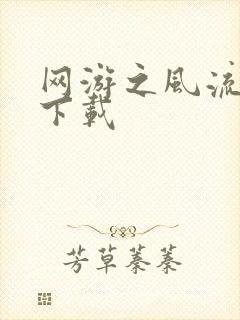 网游之风流
下载
芳草萋萋